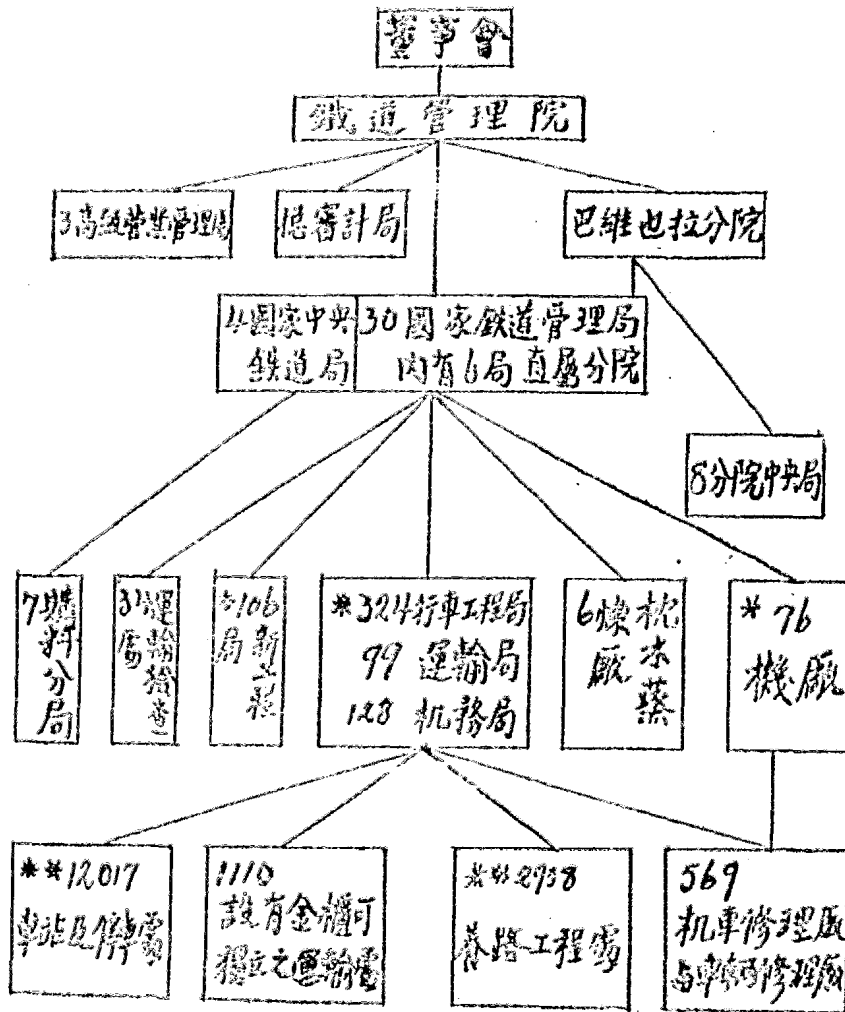 董事會
鐵道管理院
3高級营業管理局
總審計局
巴維也拉分院
4國家中央
鉄道局
30國家鉄道管理局
內有6局直屬分院
8分院中央局
7材料分局
31運輸檢查
處
*106新工程
局
*324行車工程局
99 運輸局
128 机務局
6煉枕木藥
厰
* 76
機厰
**12017
車站及停車處
1110
設有金櫃可
獨立之運輸處
**2938
養路工程處
569
机車修理厰
与車輛修理厰